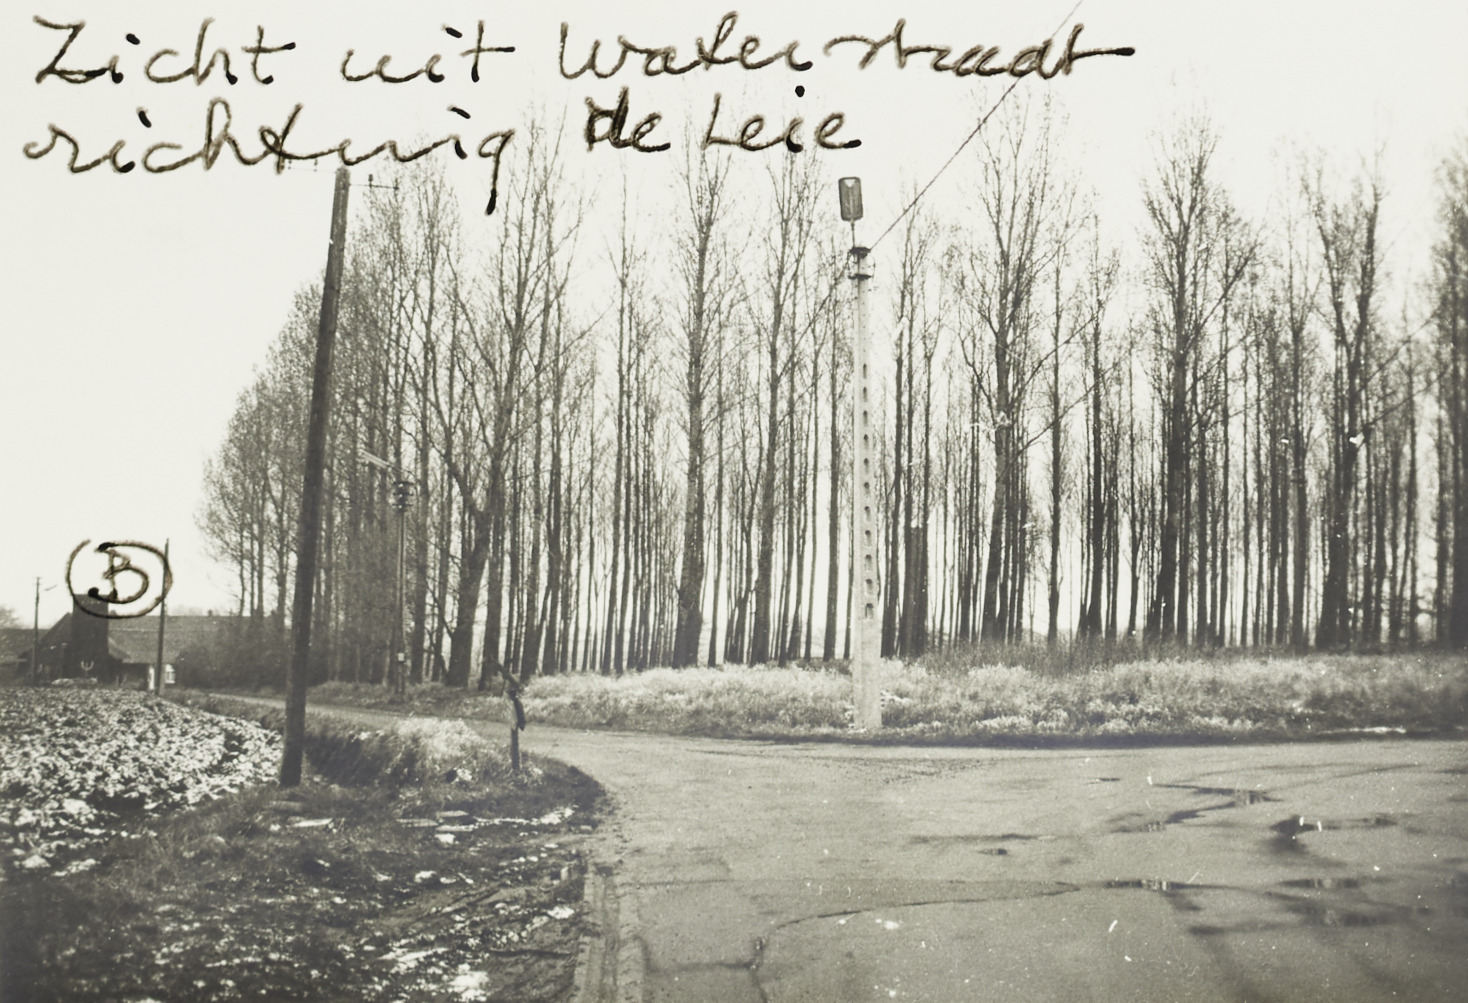 Zicht uit Waterstraat
richting de Leie
B